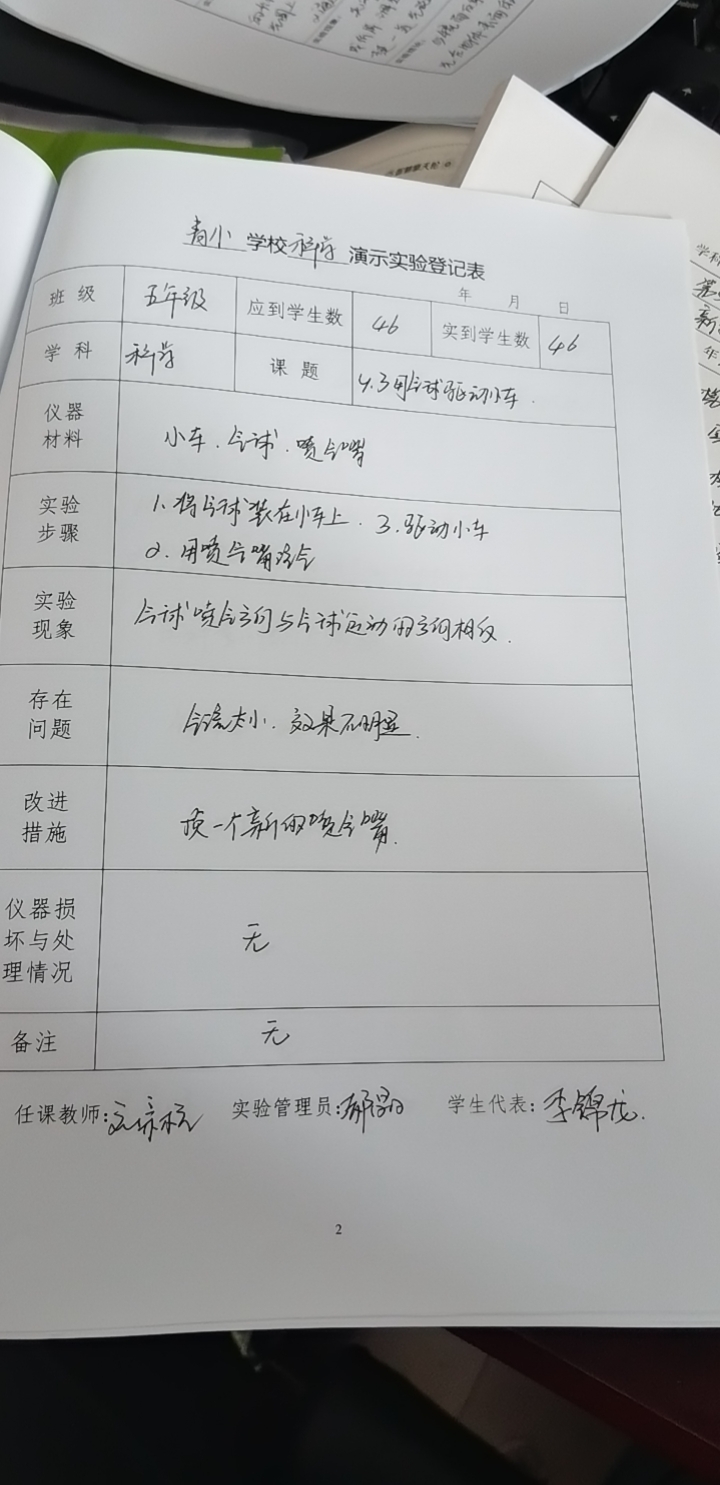 青小 学校 科学 演示实验登记表
年 月 日
班级 五年级 应到学生数 46 实到学生数 46
学科 科学 课题 4.3用气球驱动小车.
仪器材料 小车.气球.喷气嘴
实验步骤 1.将气球装在小车上. 3.驱动小车
2.用喷气嘴
实验现象 气球喷气方向与气球运动的方向相反.
存在问题 气流太小.效果不明显.
改进措施 换一个新的喷气嘴.
仪器损坏与处理情况 无
备注 无
任课教师: 实验管理员: 学生代表:李锦龙.
2